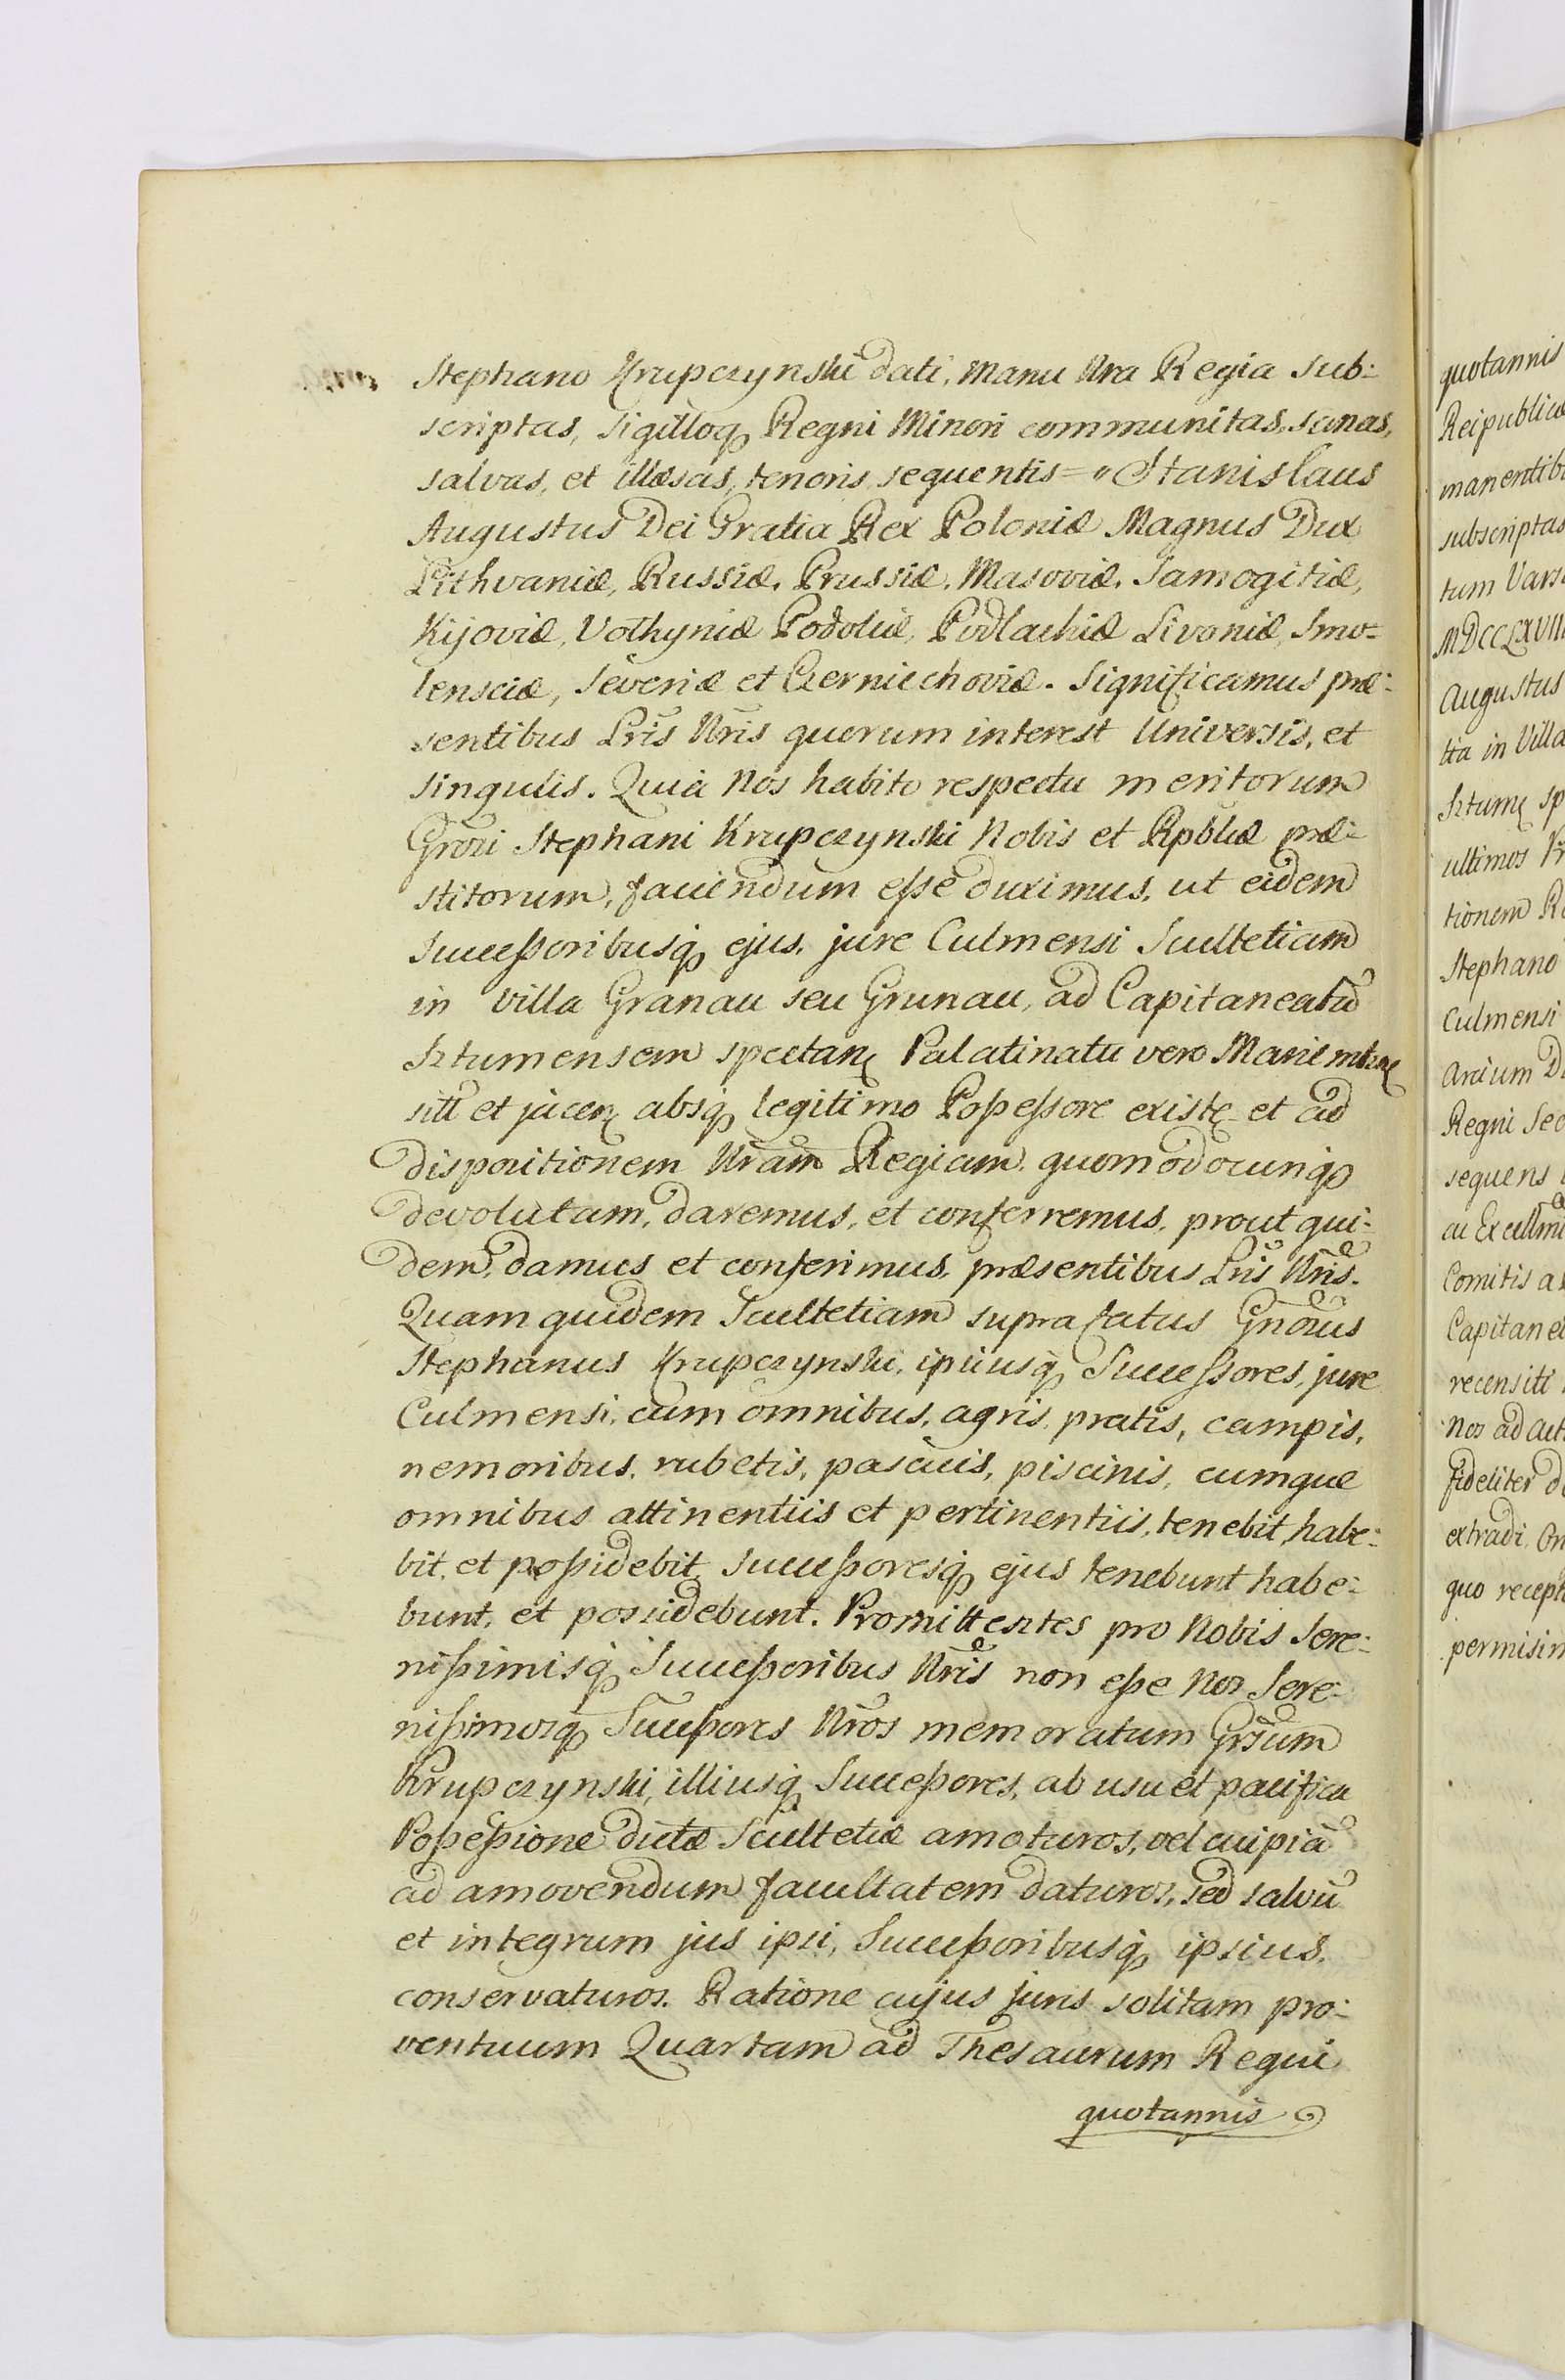 Stephano Krupczynski dati, Manu Nra Regia sub:
scriptas, sigilloq Regni Minori communitas, sanas,
salvas, et illæsas, tenoris sequentis = "Stanislaus
Augustus Dei Gratia Rex Poloniæ Magnus Dux
Lithvaniæ, Russiæ, Prussiæ, Masoviæ, Samogitiæ,
Kijoviæ, Volhyniæ Podoliæ, Podlachiæ Livoniæ, Smo-
lensciæ, Severiæ et Czerniechoviæ. Significamus præ:
sentibus Lris Nris quorum interest Universis, et
singulis. Quia Nos habito respectu meritorum
Grosi Stephani Krupczynski Nobis et Rpblicæ præ:
stitorum, faciendum esse duximus, ut eidem
Successoribusq ejus, jure Culmensi Scultetiam
in Villa Granau seu Grunau, ad Capitaneatũ
Sztumensem spectan Palatinatu vero Mariembur
sitt et jacen absq legitimo Possessore existe et ad
dispositionem Nram Regiam, quomodocunq
devolutam, daremus, et conferremus, prout qui:
dem, damus et conferimus, præsentibus Lris Nris.
Quam quidem Scultetiam suprafatus Gnosus
Stephanus Krupczynski, ipsiusq Successores, jure
Culmensi, cum omnibus, agris, pratis, campis,
nemoribus, rubetis, pascuis, piscinis, cumque
omnibus attinentiis et pertinentiis, tenebit, habe:
bit, et possidebit, Successoresq ejus tenebunt habe:
bunt, et possidebunt. Promittentes pro Nobis Sere:
nissimisq Successoribus Nris non esse Nos Sere:
nissimosq Successores Nros memoratum Grsum
Krupczynski, illiusq Successores, ab usu et pacifica
Possessione dictæ Scultetiæ amoturos, vel cuipiã
ad amovendum facultatem daturos, sed salvũ
et integrum jus ipsi, Successoribusq ipsius,
conservaturos. Ratione cujus juris solitam pro:
ventuum Quartam ad Thesaurum Regni
quotannis
quotannis
Reipublicæ
manentib
subscriptas
tum Vars
MDCCLXVIII
Augustus
tta in Villa
Sztum sp
ultimos
tionem R
Stephano
Culmensi
Arcium D
Regni
sequens
Comitis
Capitanei
recensiti
Nos ad
fideliter d
extradi
quo recept
permisim